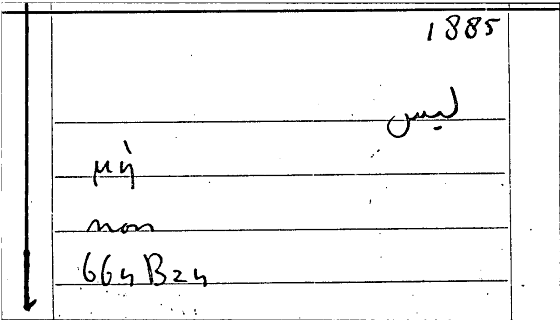 1885
ليس
μή
non
664B24